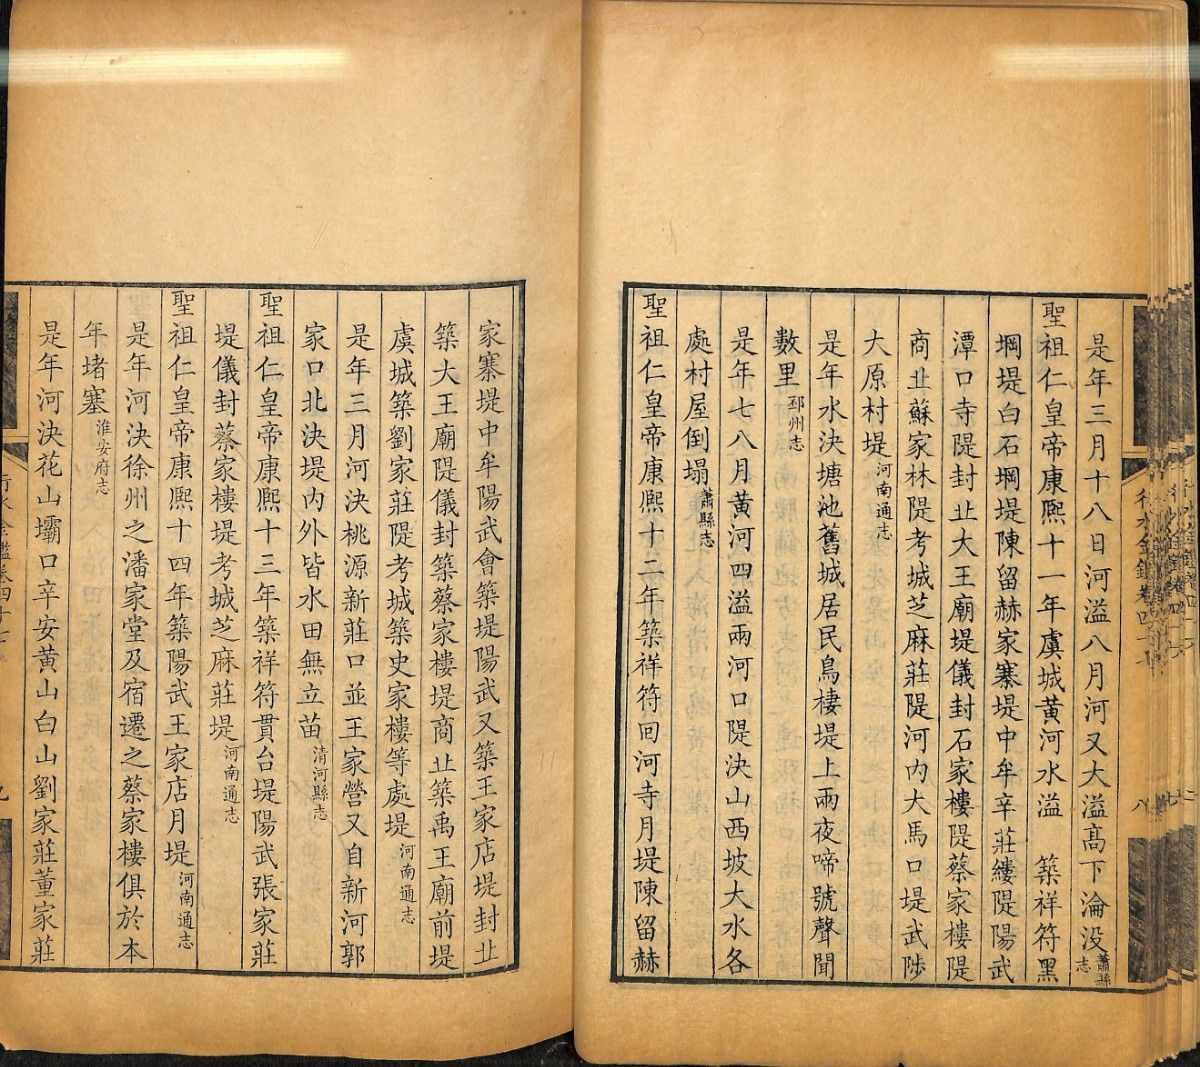 是年三月十八日河溢八月河又大溢高下淪没蕭縣志
聖祖仁皇帝康熙十一年虞城黄河水溢　築祥符黑
堈堤白石堈堤陳留赫家寨堤中牟辛莊縷隄陽武
潭口寺隄封丘大王廟堤儀封石家樓隄蔡家樓隄
商丘蘇家林隄考城芝麻莊隄河内大馬口堤武陟
大原村堤河南通志
是年水決塘池舊城居民鳥棲堤上兩夜啼號聲聞
數里邳州志
是年七八月黄河四溢兩河口隄決山西坡大水各
處村屋倒塌蕭縣志
聖祖仁皇帝康熙十二年築祥符回河寺月堤陳留赫
家寨堤中牟陽武會築堤陽武又築王家店堤封丘
築大王廟隄儀封築蔡家樓堤商丘築禹王廟前堤
虞城築劉家莊隄考城築史家樓等處堤河南通志
是年三月河決桃源新莊口並王家營又自新河郭
家口北決堤内外皆水田無立苗清河縣志
聖祖仁皇帝康熙十三年築祥符貫台堤陽武張家莊
堤儀封蔡家樓堤考城芝麻莊堤河南通志
聖祖仁皇帝康熙十四年築陽武王家店月堤河南通志
是年河決徐州之潘家堂及宿遷之蔡家樓俱於本
年堵塞淮安府志
是年河決花山壩口辛安黄山白山劉家莊董家莊